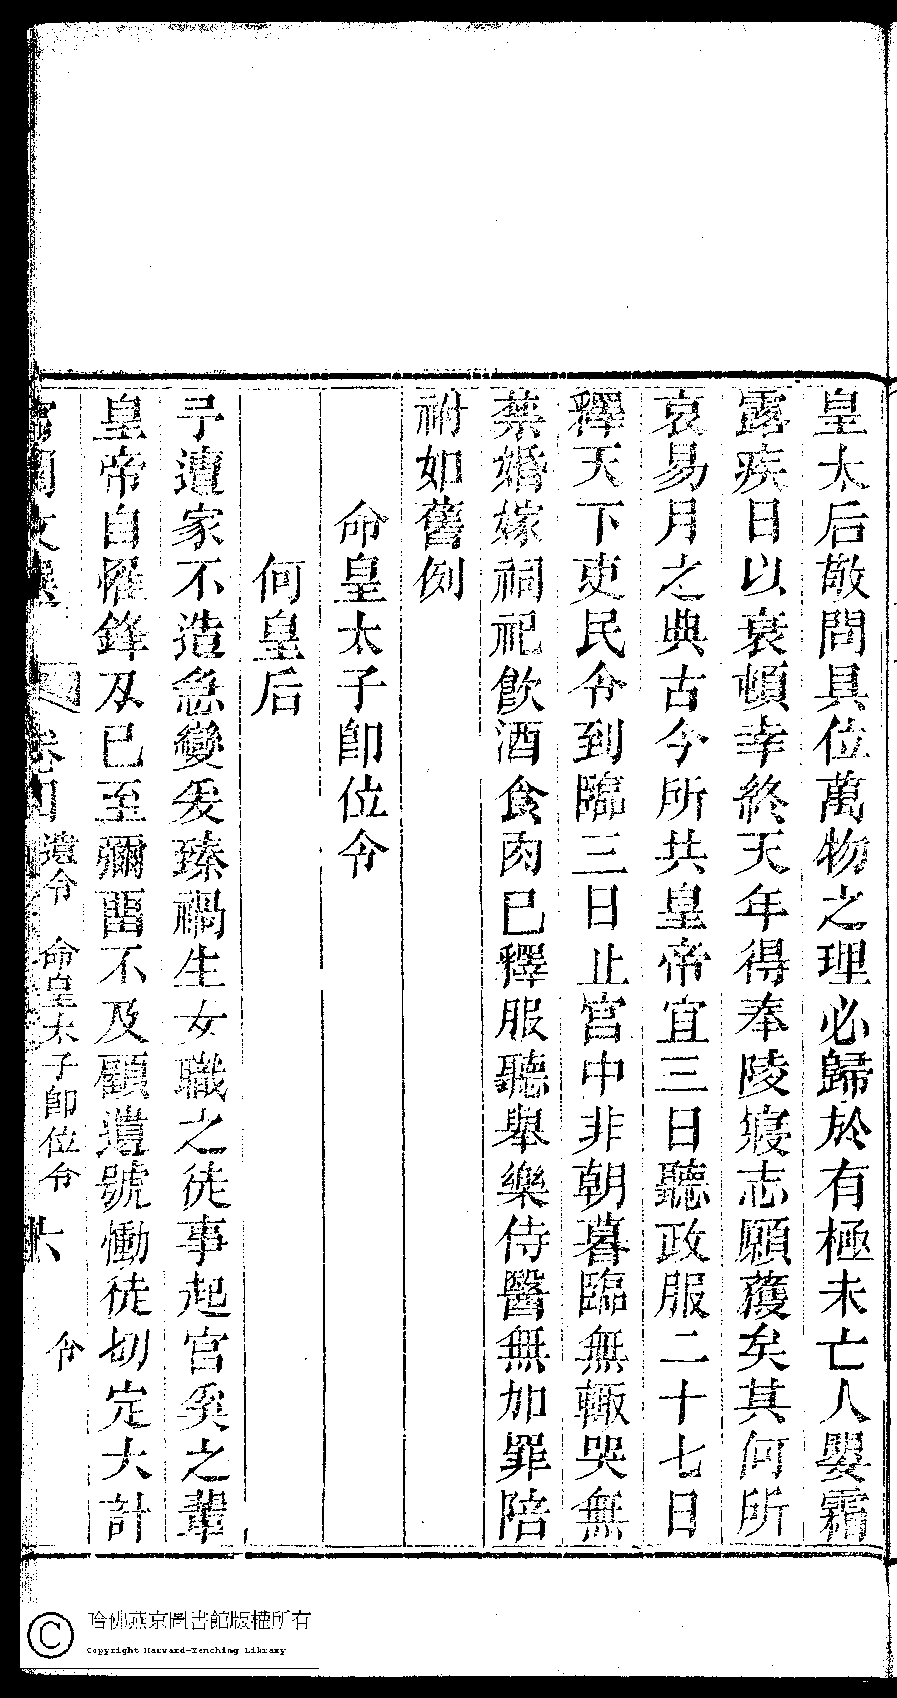 皇太后敬問具位萬物之理必歸於有極未亡人嬰霜
露疾日以衰頓幸終天年得奉陵寢志願獲矣其何所
哀易月之典古今所共皇帝宜三日聽政服二十七日
釋天下吏民令到臨三日止宮中非朝暮臨無輒哭無
禁婚嫁祠祀飲酒食肉已釋服聽舉樂侍醫無加罪陪
祔如舊例
命皇太子即位令
何皇后
予遭家不造急變爰臻禍生女職之徒事起宮奚之輩
皇帝自罹鋒刃已至彌留不及顧遺號慟徒切定大計
宮閨文選 卷四 遺令 命皇太子即位令 六 令
哈佛燕京圖書館版權所有
Copyright Harvard-Yenching Library